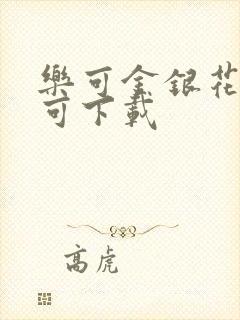 樂可金銀花
可下載
高虎